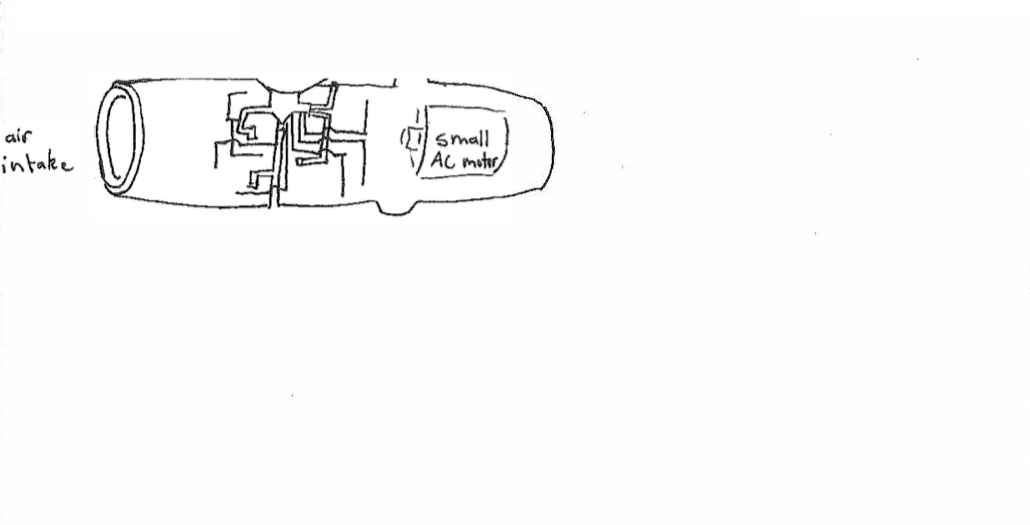 air
intake
small
AC motor